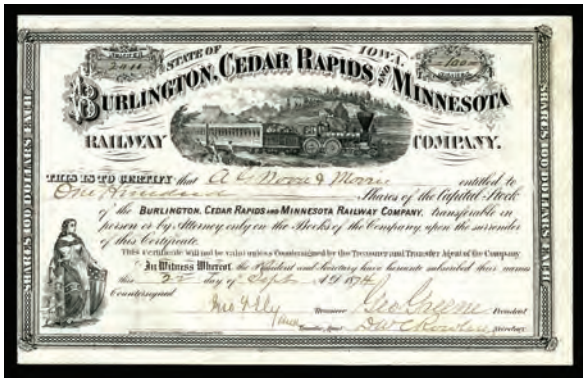 STATE OF IOWA.
NUMBER
SHARES
100
BURLINGTON, CEDAR RAPIDS AND MINNESOTA
RAILWAY COMPANY.
THIS IS TO CERTIFY that A entitled to
One Hundred Shares of the Capital Stock
of the BURLINGTON, CEDAR RAPIDS AND MINNESOTA RAILWAY COMPANY, transferable in
person or by Attorney only on the Books of the Company, upon the surrender
of this Certificate.
This Certificate will not be valid unless Countersigned by the Treasurer and Transfer Agent of the Company
In Witness Whereof the President and Secretary have hereunto subscribed their names
this 22 day of Sept 1874
Countersigned
Geo Greene President
Treasurer
Transfer Agent Secretary
SHARES 100 DOLLARS EACH
SHARES 100 DOLLARS EACH